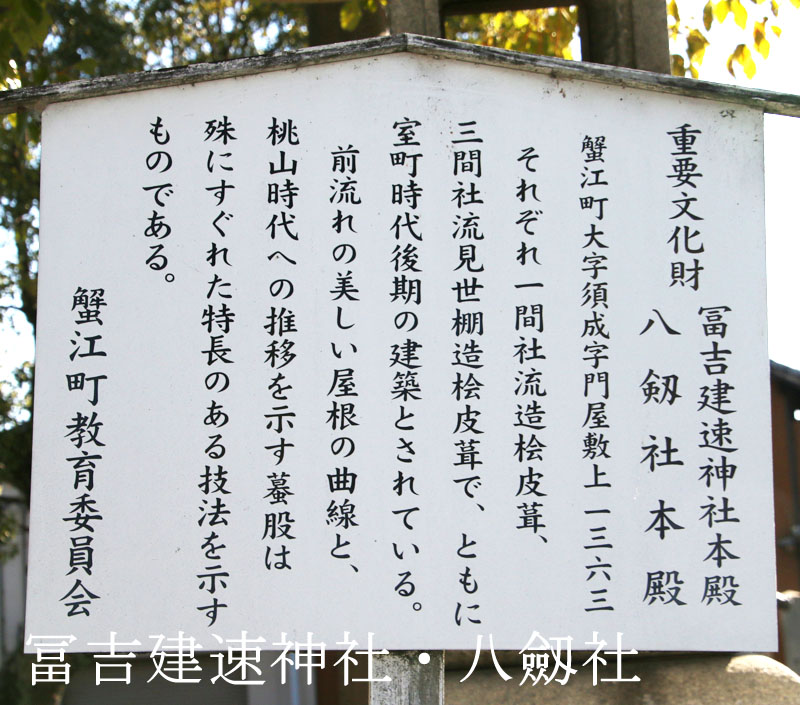 重要文化財
冨吉建速神社本殿
八剱社本殿
蟹江町大字須成字門屋敷上一三六三
それぞれ一間社流造桧皮葺、
三間社流見世棚造桧皮葺で、ともに
室町時代後期の建築とされている。
前流れの美しい屋根の曲線と、
桃山時代への推移を示す蟇股は
殊にすぐれた特長のある技法を示す
ものである。
蟹江町教育委員会
冨吉建速神社・八劔社